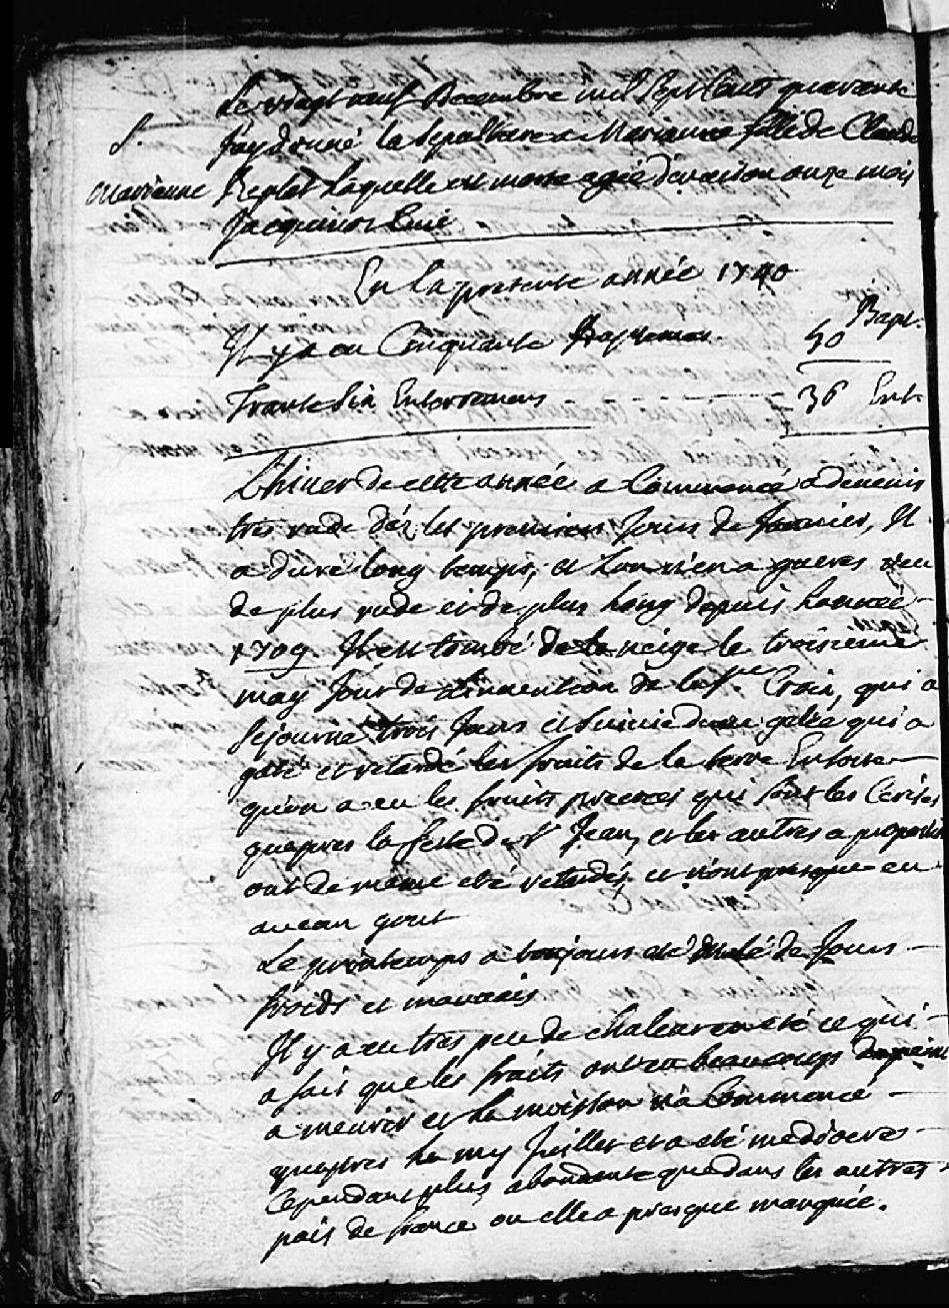 Le vingt neuf Decembre mil sept cent quarante
S. J'ay donné la sepulture a Marianne fille de Claude
Marianne Replat Laquelle est morte agée d'environ onze mois
Jacquinot Curé
En la presente année 1740
Bapt.
Il y a eu Cinquante Baptemes. 50
Trante six Enterremens 36 Ent.
L'hiver de cette année a Commencé a devenir
tres rude déz les premiers Jours de Janvier, Il
a duré long temps, et L'on n'en a gueres veu
de plus rude et de plus long depuis L'année
1709. Il est tombé de la neige le troisieme
may Jour de L'invention de la Ste Croix, qui a
sejourné trois Jours et suivie d'une gelée qui a
gaté et retardé les fruits de la terre En sorte
qu'on a eu les fruits precoces qui sont les Cerises
qu'apres la feste de St Jean, et les autres a proportion
ont de meme eté retardés, et n'ont presque eu
aucun gout
Le printemps a toujours eté de Jours
froids et mauvais
Il y a eu tres peu de chaleur en eté ce qui
a fait que les fruits ont eu beaucoup de peine
a meurir et La moisson n'a Commencé
qu'apres La my Juillet et a eté mediocre
Cependant plus abondante que dans les autres
païs de france ou elle a presque manquée.